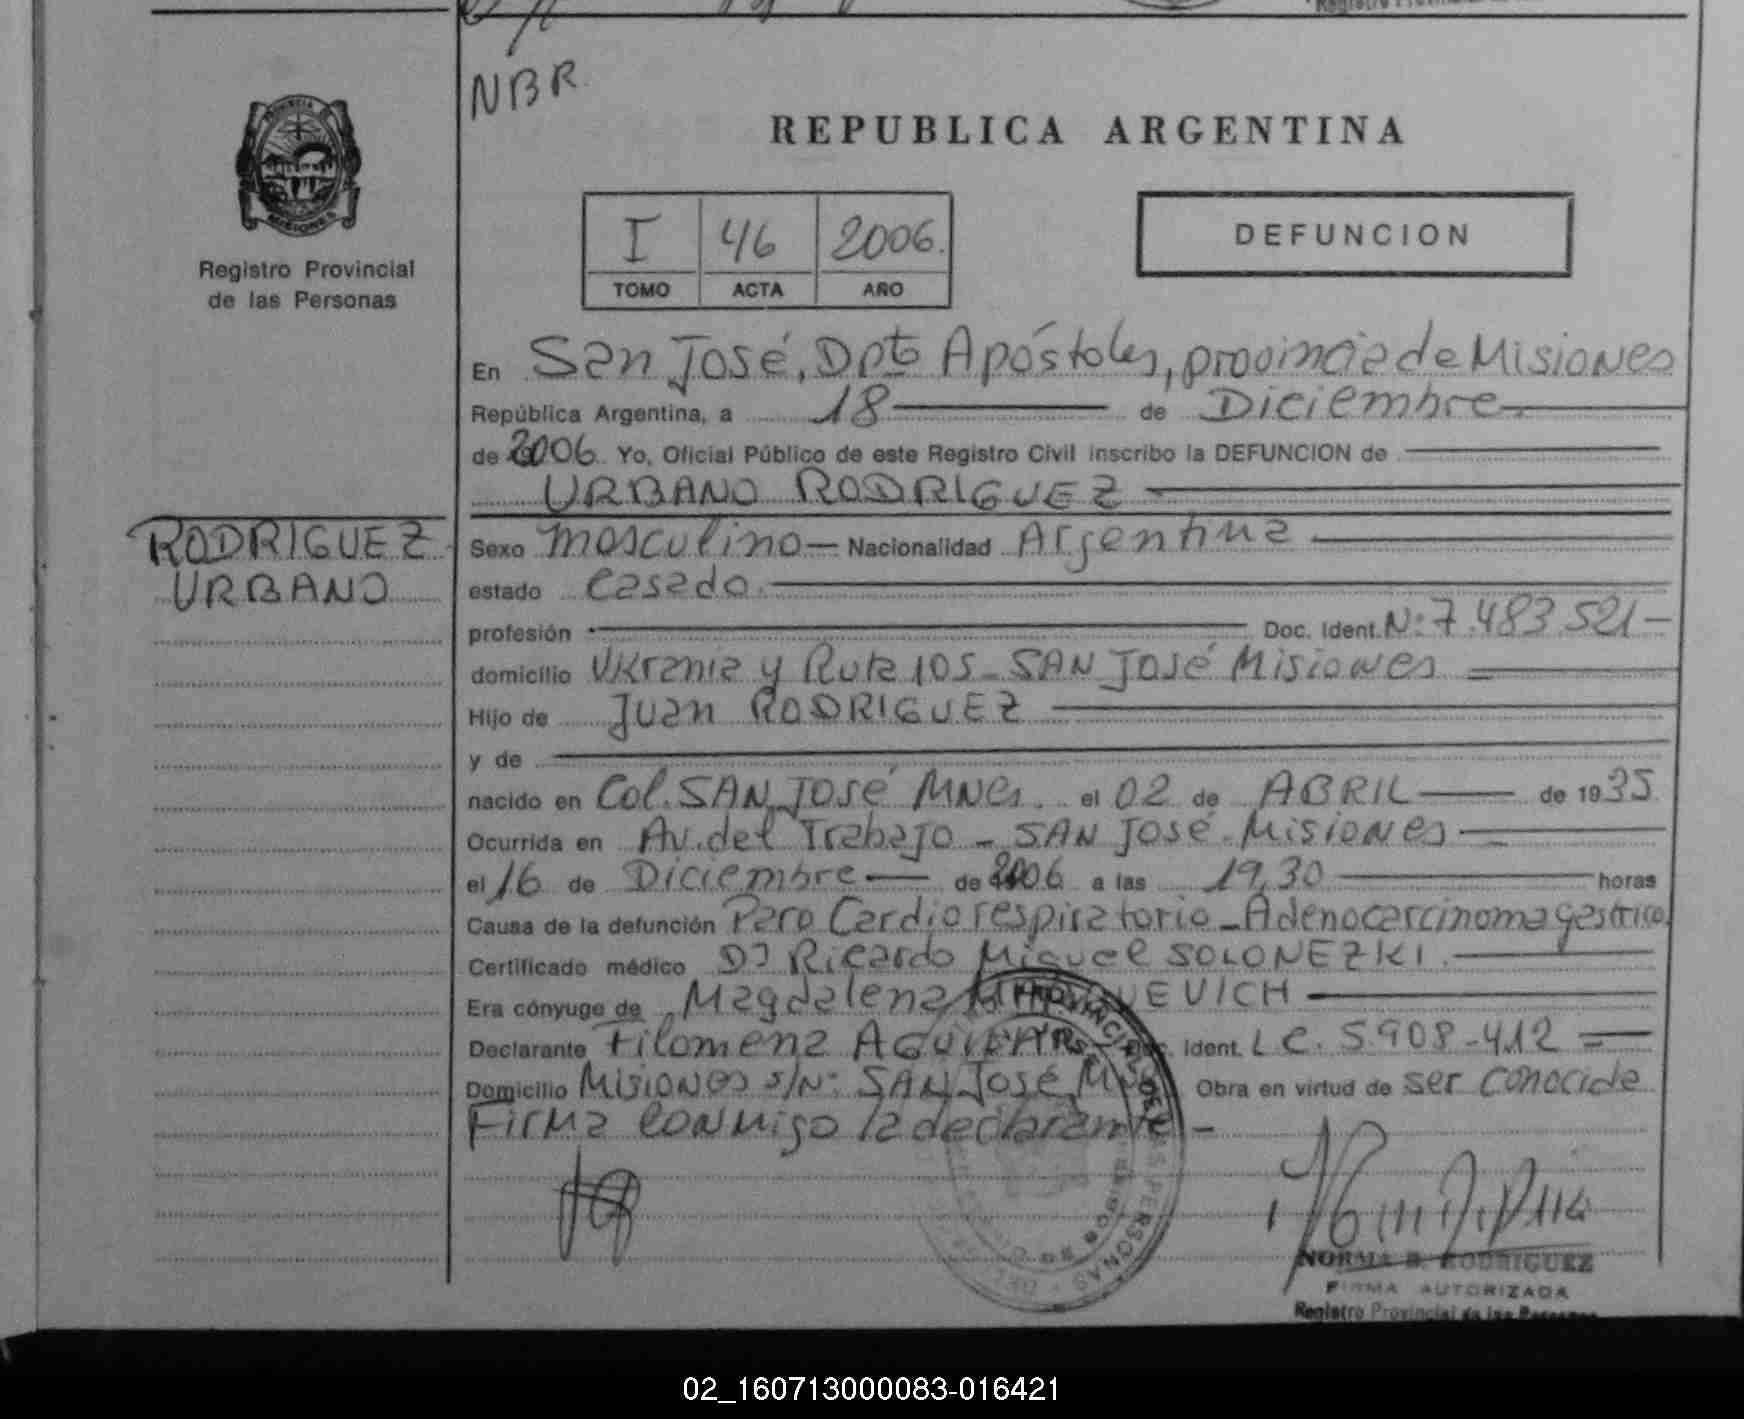 NBR.
REPUBLICA ARGENTINA
PROVINCIA DE
MISIONES
Registro Provincial
de las Personas
I 46 2006.
TOMO ACTA AÑO
DEFUNCION
En San José, Dpto Apóstoles, provincia de Misiones
República Argentina, a 18 de Diciembre
de 2006 Yo, Oficial Público de este Registro Civil inscribo la DEFUNCION de
URBANO RODRIGUEZ
RODRIGUEZ
URBANO
Sexo masculino Nacionalidad Argentina
estado Casado.
profesión Doc. Ident. Nº 7.483.521
domicilio Ukrania y Ruta 105 - SAN José Misiones
Hijo de Juan RODRIGUEZ
y de
nacido en Col. SAN José Mnes. el 02 de ABRIL de 1935
Ocurrida en Av. del Trabajo - SAN José - Misiones
el 16 de Diciembre de 2006 a las 19,30 horas
Causa de la defunción Paro Cardiorespiratorio - Adenocarcinoma gastrico.
Certificado médico Dr Ricardo Miguel SOLONEZKI.
Era cónyuge de Magdalena
Declarante Filomena AGUILAR Doc. Ident. L C. 5.908-412
Domicilio Misiones s/Nº SAN José Mnes Obra en virtud de ser conocida
Firma conmigo la declarante -
NORMA B. RODRIGUEZ
FIRMA AUTORIZADA
Registro Provincial de las Personas
02_160713000083-016421